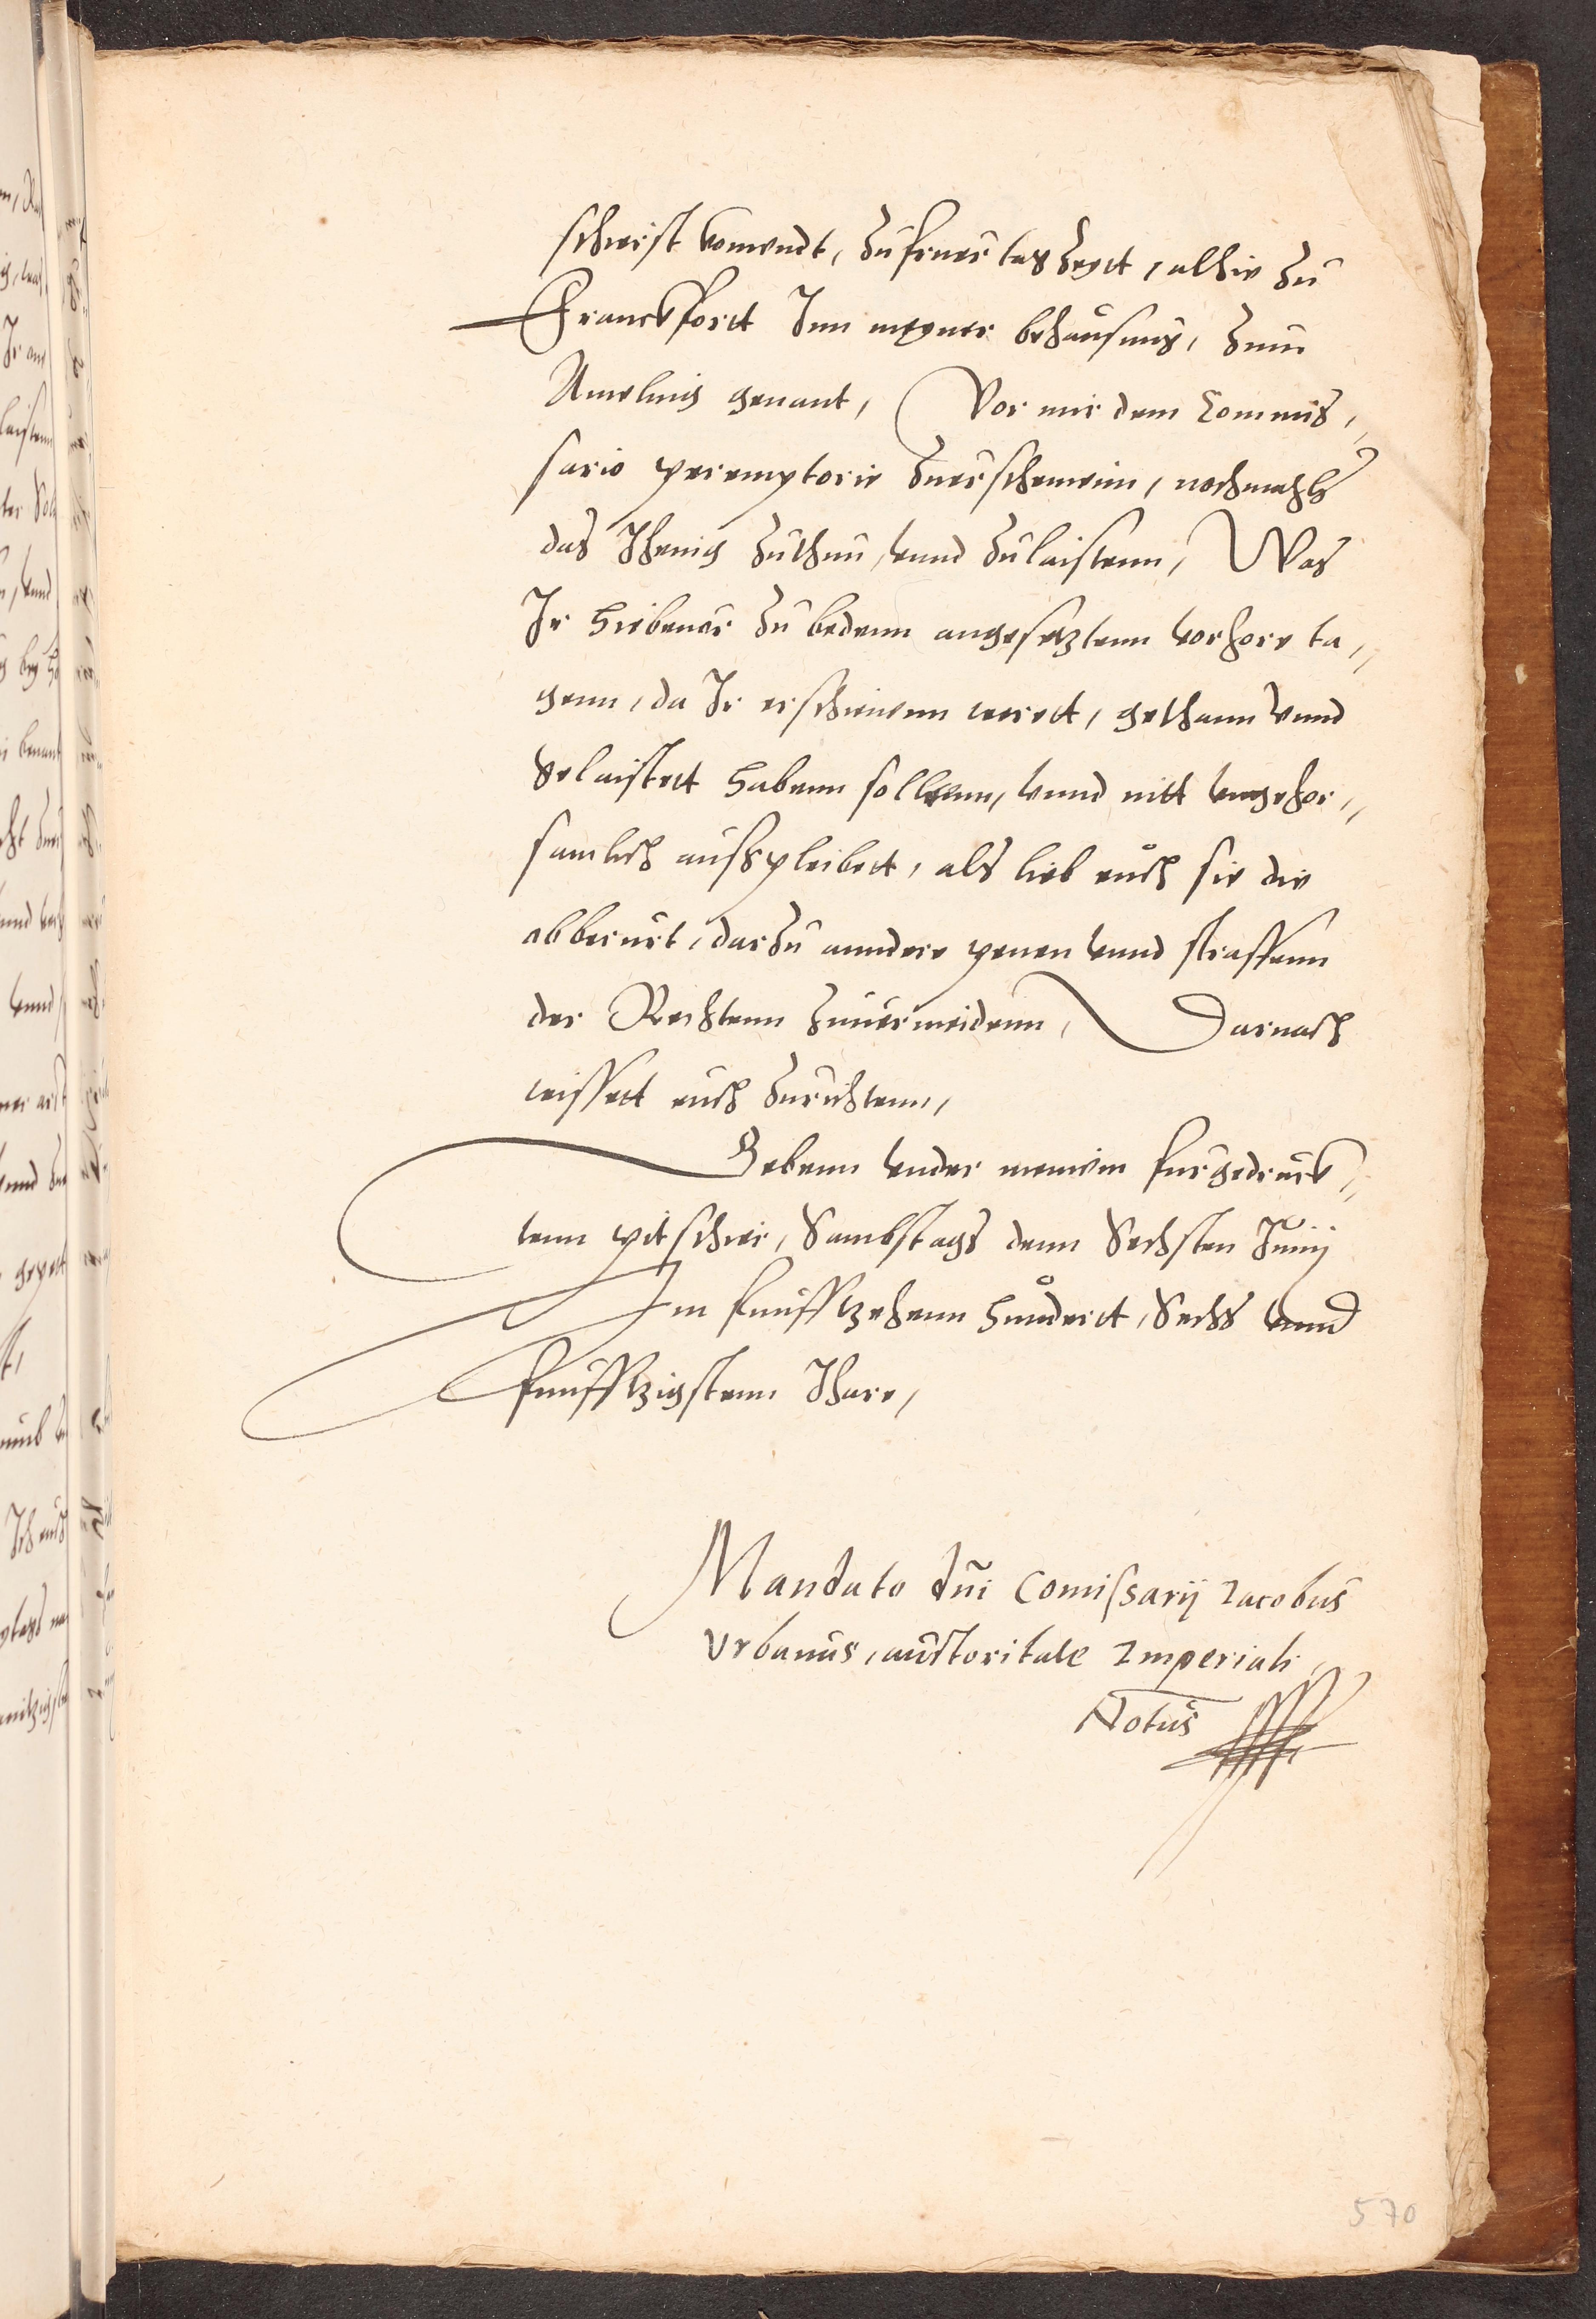 schirist komendt, zu fruer tag Zeytt, alhie zu
Franckfortt Inn meyner behausung, zum
Amelung genant, Vor mir dem Commis„
sario peremptorie zuerscheinenn, nochmahls
das Jhenig zuthun, vnnd zulaistenn, Was
Ir hiebeuor zu bedenn angesetztenn vorhore ta„
genn, da Ir erschienenn werett, gethann vnnd
gelaistett habenn sollenn, vnnd nitt vngehor„
samlich außpleibett, als lieb euch sie die
obberurt, darzu anndere penen vnnd straffenn
der Rechtenn zuuermeidenn, Darnach
wissett euch zurichtenn,
Gebenn vnder meinem furgedruck„
tenn pitschir, Sambstags denn Sechsten Junij
Im funfftzehenn hundertt, Sechs vnnd
funfftzigstenn Jhare,
Mandato dni Comissarij Iacobus
Vrbanus, auctoritate Imperiali
Notus
570